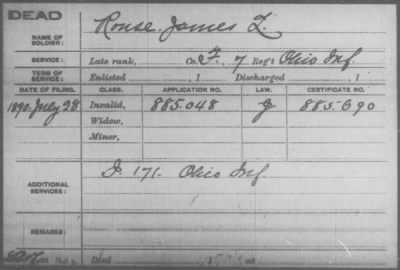 DEAD
NAME OF SOLDIER: Rouse, James L.
SERVICE: Late rank, Co. F, 7 Reg't Ohio Inf.
TERM OF SERVICE: Enlisted , 1 Discharged , 1
DATE OF FILING. CLASS. APPLICATION NO. LAW. CERTIFICATE NO.
1890, July 28 Invalid, 885.048 G 885.690
Widow,
Minor,
ADDITIONAL SERVICES: 171. Ohio Inf.
REMARKS:
Died